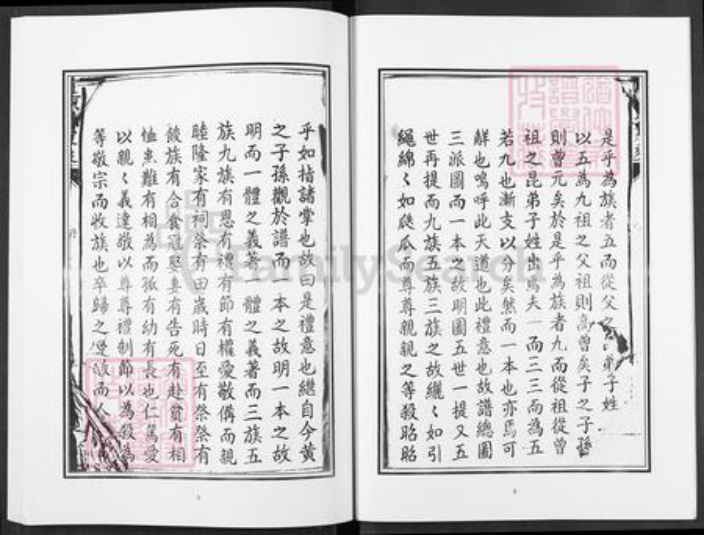 是乎為族者五而從父之弟子姓
以五為九祖之父祖則高曾矣子之子孫
則曾元矣於是乎為族者九而從祖從曾
祖之昆弟子姓出焉夫一而三三而為五
若九也漸支以分矣然而一本也亦焉可
辭也嗚呼此天道也此禮意也故譜總圖
三派圖而一本之故明圖五世一提又五
世再提而九族五族三族之故繼〻如引
繩綿〻如瓞瓜而尊尊親親之等殺昭昭
乎如指諸掌也故曰是禮意也繼自今黃
之子孫觀於譜而一本之故明一本之故
明而一體之義著一體之義著而三族五
族九族有恩有禮有節有權愛敬備而親
睦隆家有祠祭有田歲時日至有祭祭有
餕族有合食冠娶妻有告死有赴貧有相
恤患難有相為而孤有幼有長也仁篤愛
以親〻義達敬以尊尊禮制節以為殺為
等敬宗而收族也卒歸之受而人
FamilySearch